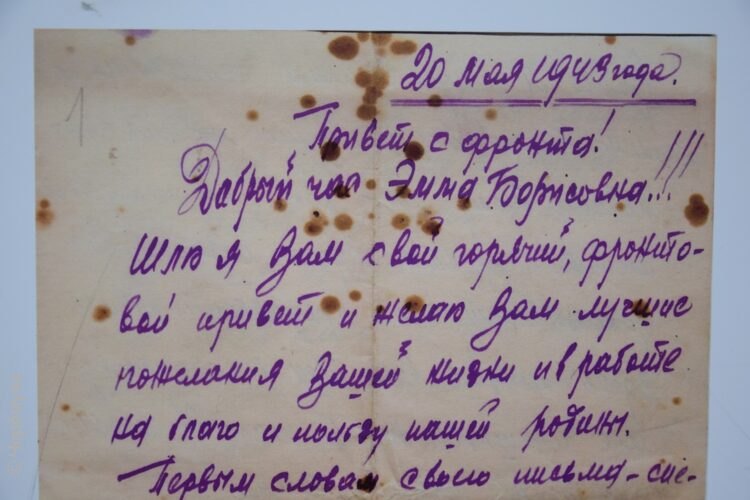 1
20 мая 1943 года.
Привет с фронта!
Добрый час Эмма Борисовна!!!
Шлю я Вам свой горячий, фронто-
вой привет и желаю Вам лучшие
пожелания Вашей жизни и в работе
на благо и пользу нашей родины.
Первым словам своего письма – спе-